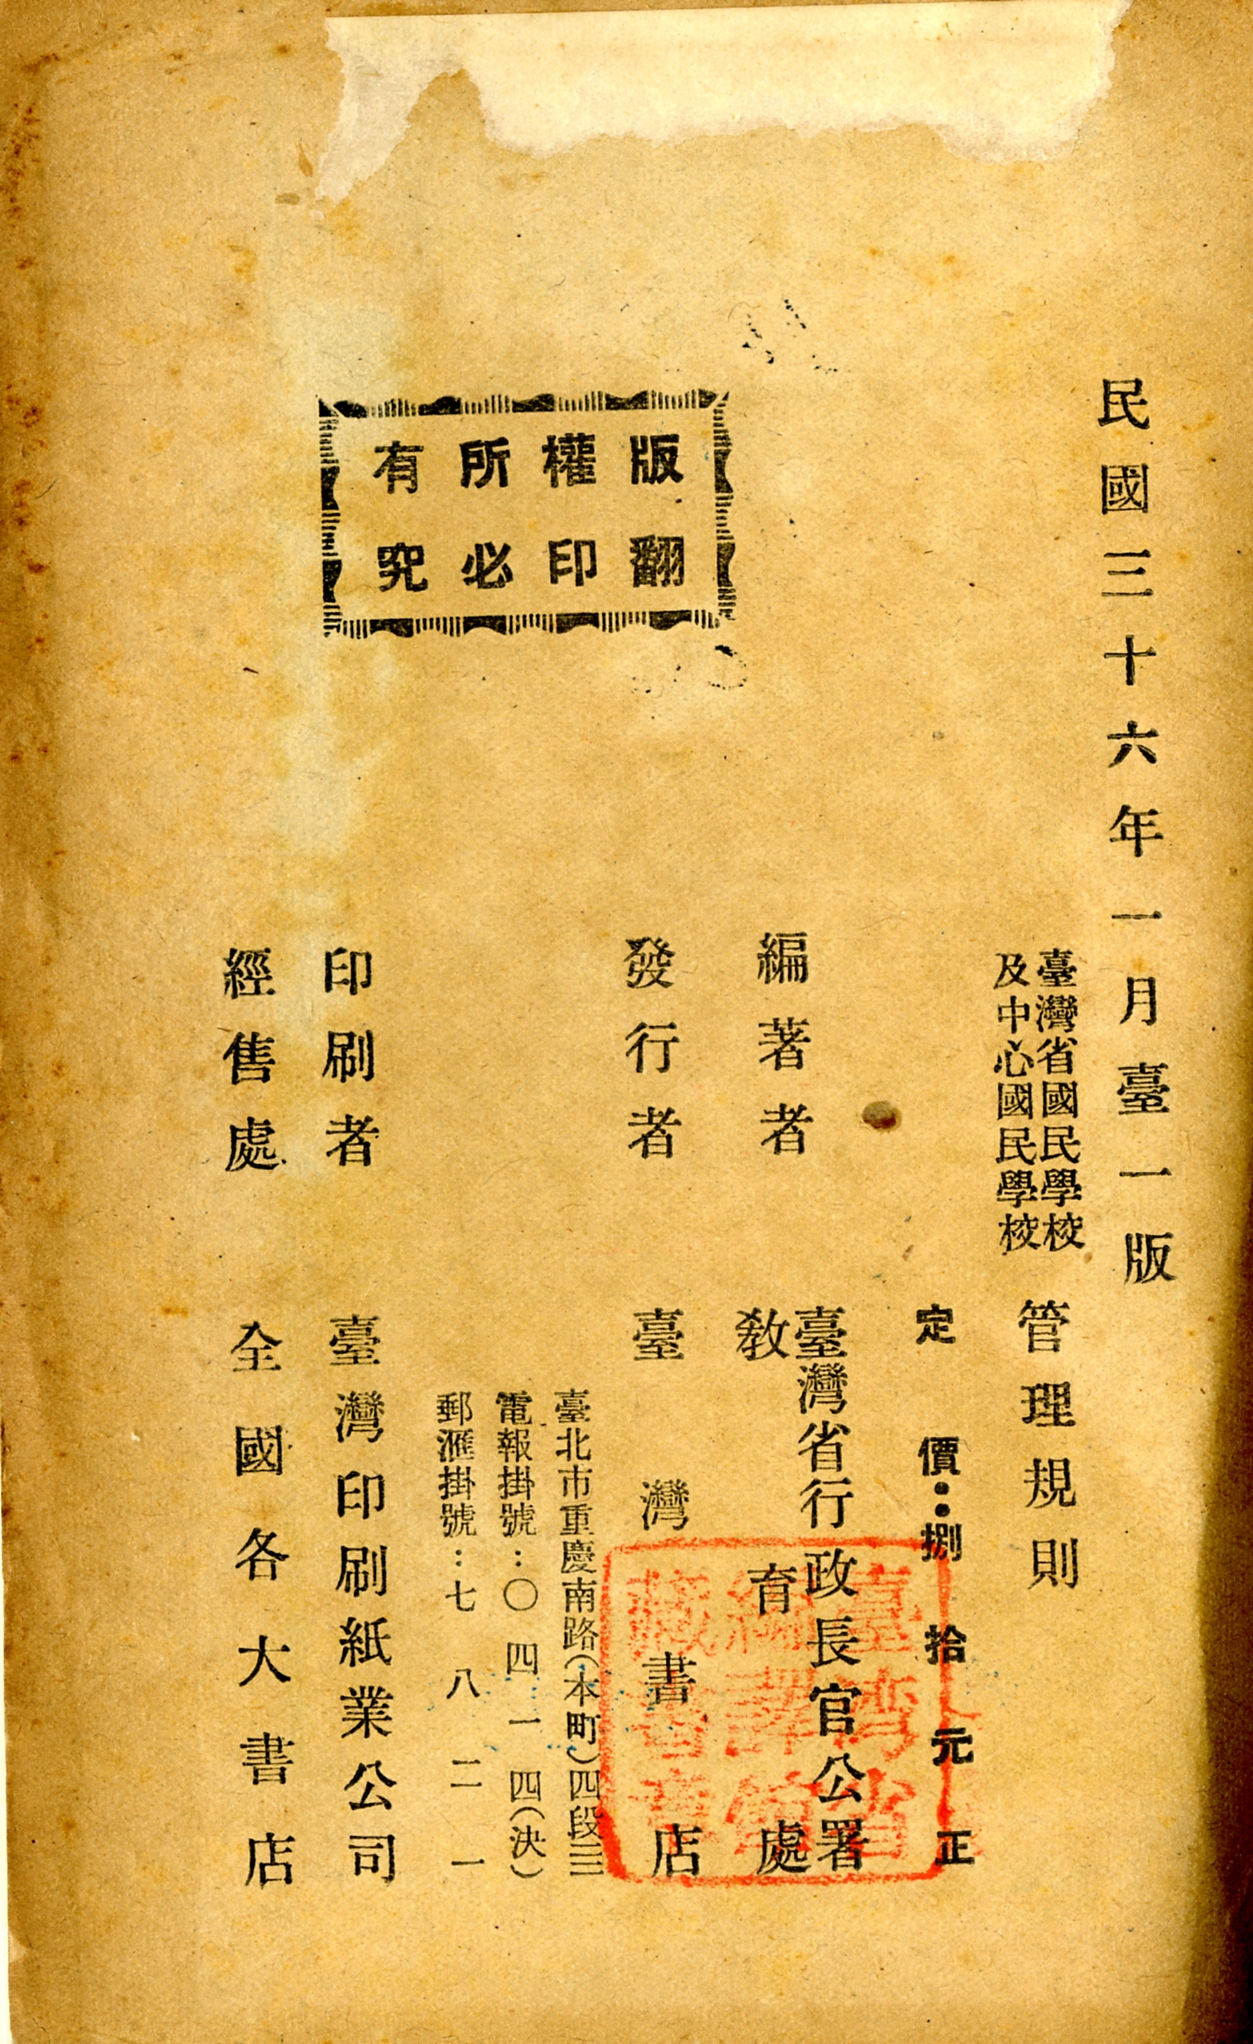 民國三十六年一月臺一版
臺灣省國民學校
及中心國民學校
管理規則
定價：捌拾元正
編著者
臺灣省行政長官公署
教育處
發行者
臺灣書店
臺北市重慶南路(本町)四段三
電報掛號：〇四一四(決)
郵滙掛號：七八二一
印刷者
臺灣印刷紙業公司
經售處
全國各大書店
版權所有
翻印必究
臺灣省
編譯館
藏書章